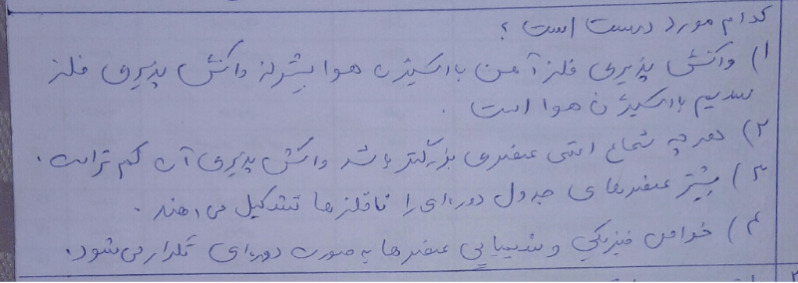 کدام مورد درست است؟
۱) واکنش پذیری فلز آهن با اکسیژن هوا بیشتر از واکنش پذیری فلز
سدیم با اکسیژن هوا است.
۲) هرچه شعاع اتمی عنصری بزرگتر باشد واکنش پذیری آن کم تر است.
۳) بیشتر عنصرهای جدول دوره‌ای را نافلزها تشکیل می دهند.
۴) خواص فیزیکی و شیمیایی عنصرها به صورت دوره‌ای تکرار می‌شود.